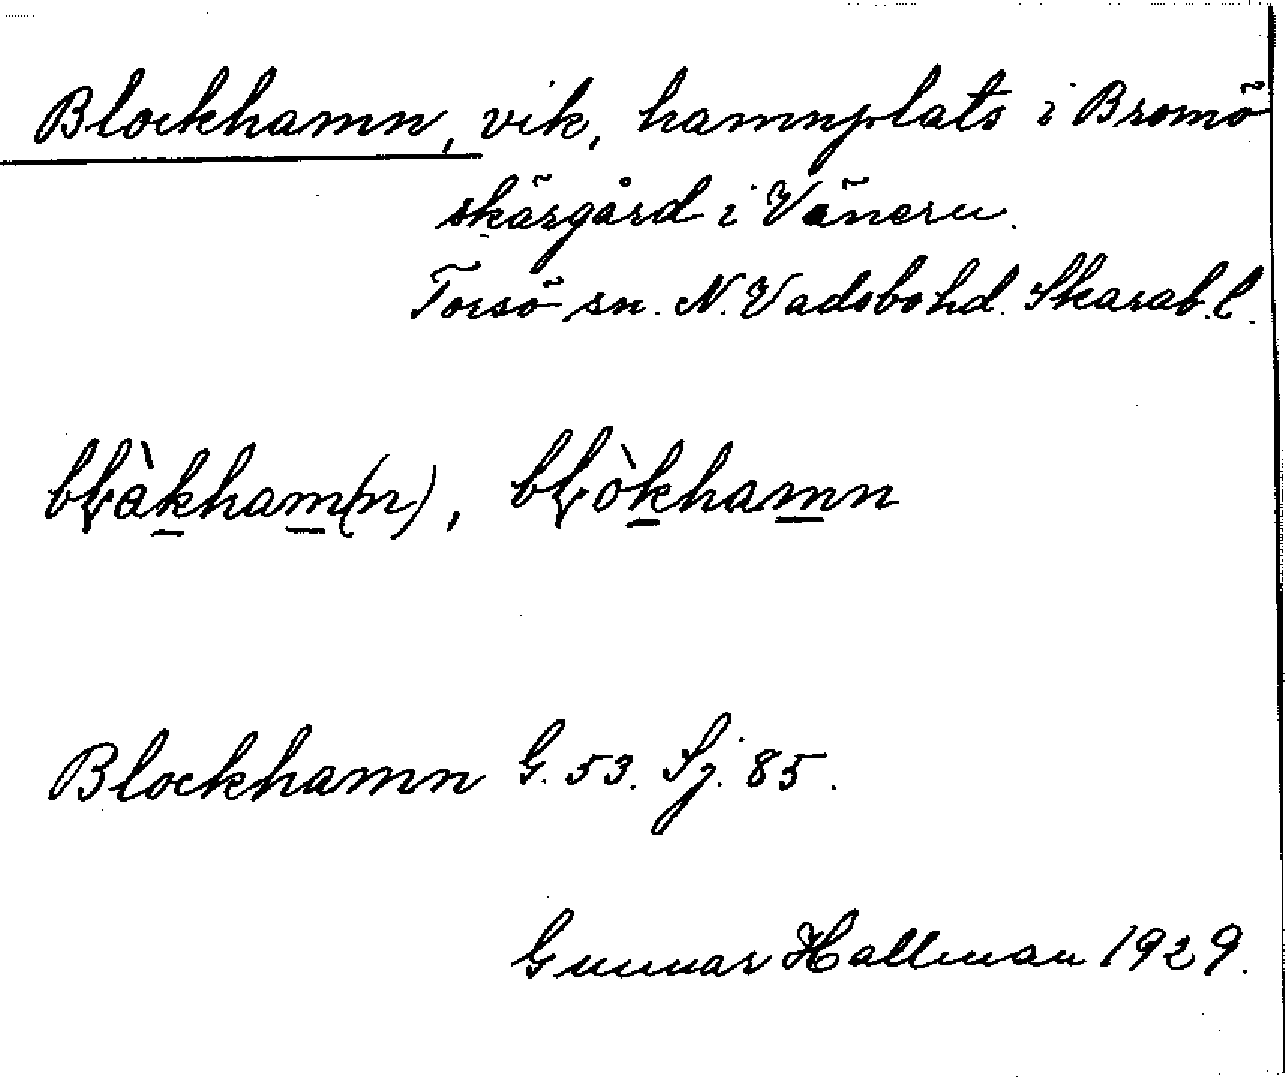 Blockhamn, vik, hamnplats i Bromö
skärgård i Vänern.
Torsö sn. N. Vadsbo hd. Skarab. l.
bɫàkham(n), bɫòkhamn
Blockhamn G. 53. Sj. 85.
Gunnar Hallman 1929.